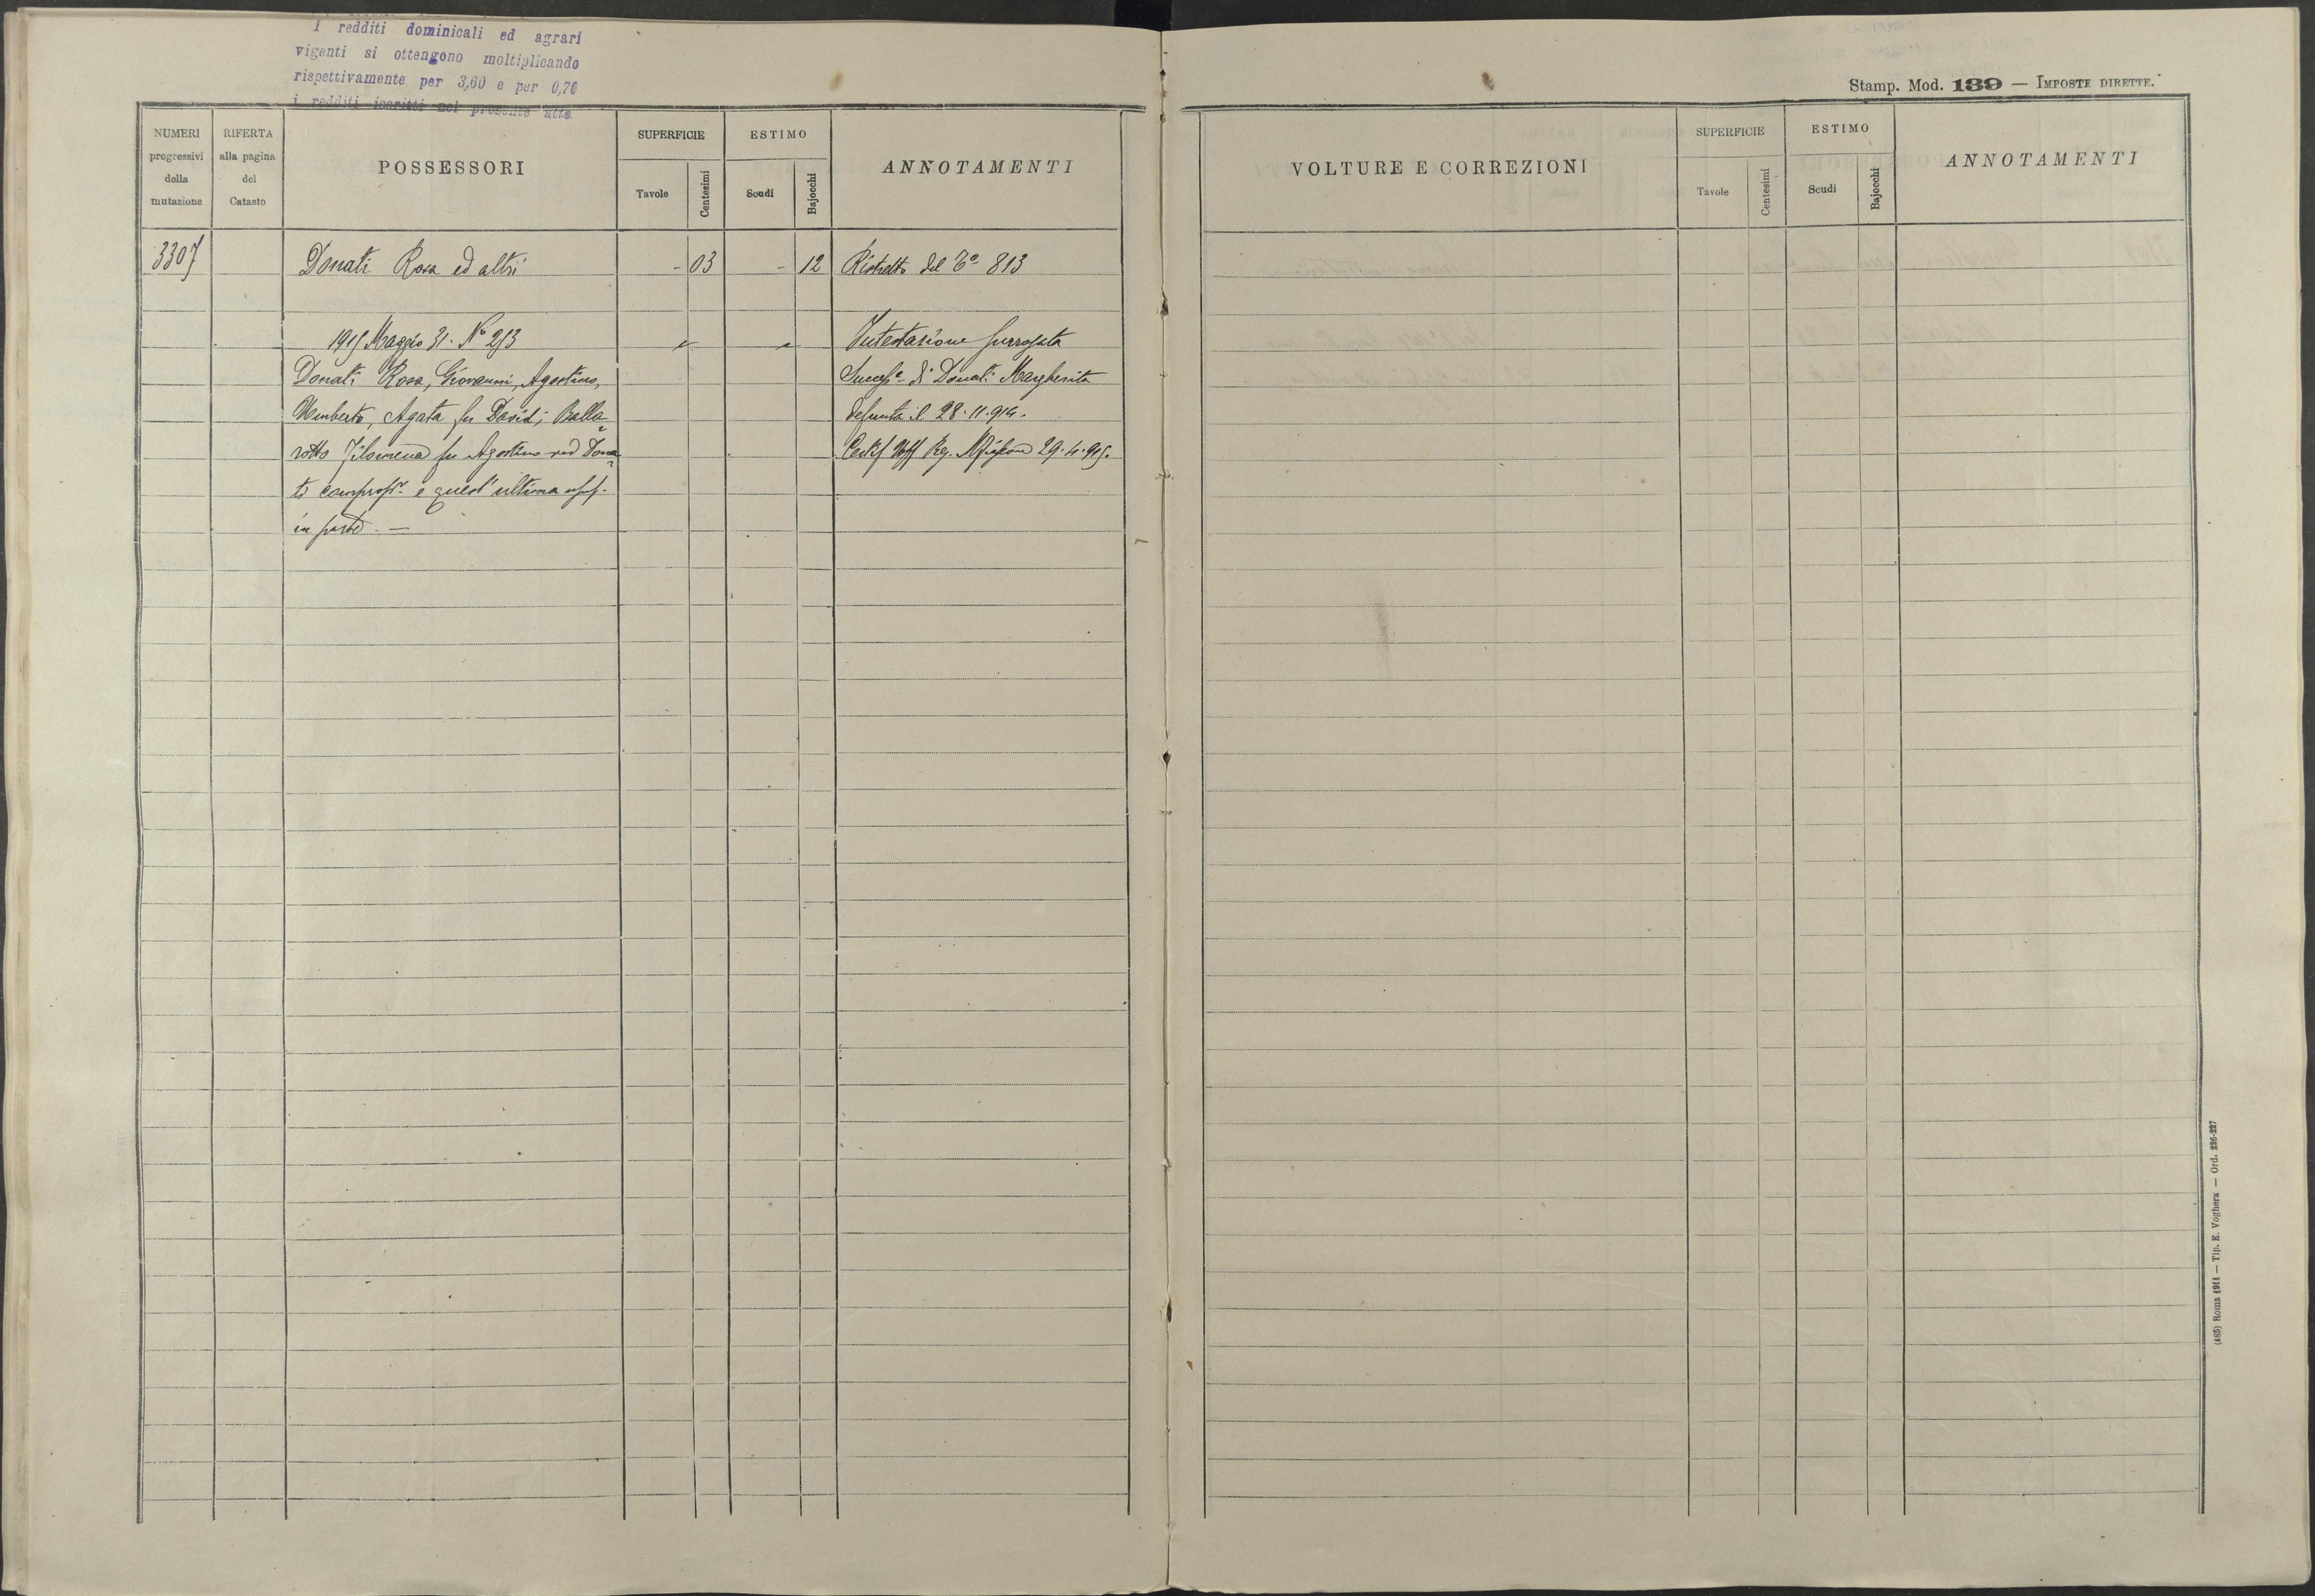 I redditi dominicali ed agrari
vigenti si ottengono moltiplicando
rispettivamente per 3,60 e per 0,70
i redditi iscritti nel presente atto
NUMERI progressivi della mutazione
RIFERTA alla pagina del Catasto
POSSESSORI
SUPERFICIE
Tavole
Centesimi
ESTIMO
Scudi
Bajocchi
ANNOTAMENTI
3307 Donati Rosa ed altri - 03 - 12 Ristretto del T° 813
1915 Maggio 31. N° 213 Intestazione surrogata
Donati Rosa, Giovanni, Agostino, Success.e di Donati Margherita
Umberto, Agata fu David; Balla= defunta il 28.11.914.
rotto Filomena fu Agostino ved Dona= Certif Uff Reg. 29.4.915.
ti comprop.ri e quest'ultima usuf.
in parte. —
Stamp. Mod. 139 — IMPOSTE DIRETTE.
VOLTURE E CORREZIONI
SUPERFICIE
Tavole
Centesimi
ESTIMO
Scudi
Bajocchi
ANNOTAMENTI
(485) Roma 1911 — Tip. E. Voghera — Ord. 226-227